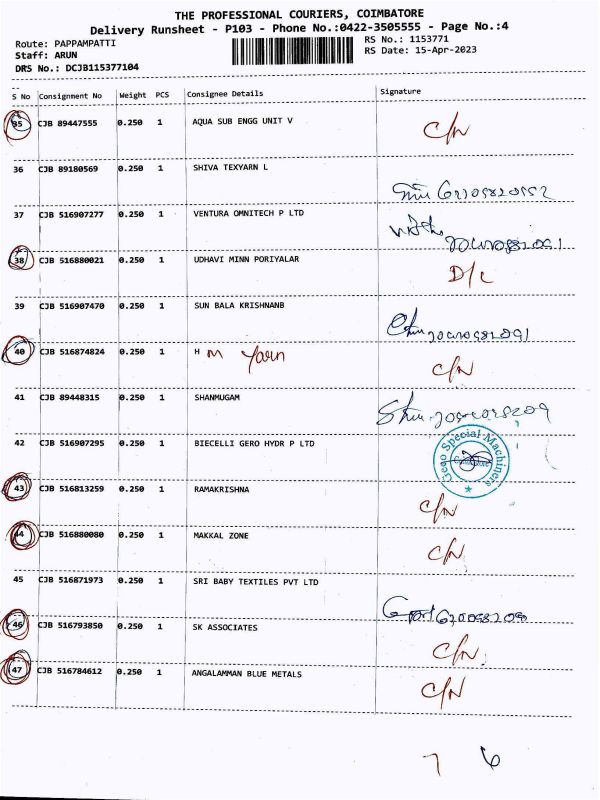 THE PROFESSIONAL COURIERS, COIMBATORE
Delivery Runsheet - P103 - Phone No.:0422-3505555 - Page No.:4
Route: PAPPAMPATTI
RS No.: 1153771
Staff: ARUN
RS Date: 15-Apr-2023
DRS No.: DCJB115377104
S No Consignment No Weight PCS Consignee Details Signature
35 CJB 89447555 0.250 1 AQUA SUB ENGG UNIT V C/N
36 CJB 89180569 0.250 1 SHIVA TEXYARN L
37 CJB 516907277 0.250 1 VENTURA OMNITECH P LTD
38 CJB 516880021 0.250 1 UDHAVI MINN PORIYALAR D/C
39 CJB 516907470 0.250 1 SUN BALA KRISHNANB
40 CJB 516874824 0.250 1 H M Yarn C/N
41 CJB 89448315 0.250 1 SHANMUGAM
42 CJB 516907295 0.250 1 BIECELLI GERO HYDR P LTD Special Machiners
43 CJB 516813259 0.250 1 RAMAKRISHNA C/N
44 CJB 516880080 0.250 1 MAKKAL ZONE C/N
45 CJB 516871973 0.250 1 SRI BABY TEXTILES PVT LTD
46 CJB 516793850 0.250 1 SK ASSOCIATES C/N
47 CJB 516784612 0.250 1 ANGALAMMAN BLUE METALS C/N
7 6